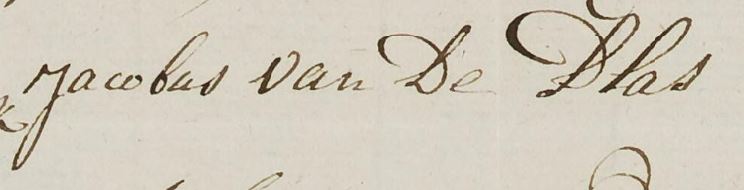 Jacobus van De Plas